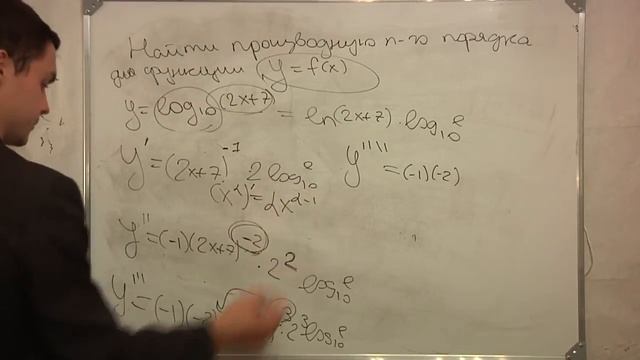 Найти производную n-го порядка
для функции y = f(x)
y = log10 (2x+7) = ln(2x+7) · log10 e
y' = (2x+7)^-1 2 log10 e
(x^α)' = αx^α-1
y'''' = (-1)(-2)
y'' = (-1)(2x+7)^-2 · 2^2 log10 e
y''' = (-1)(-2 3 · 2^3 log10 e